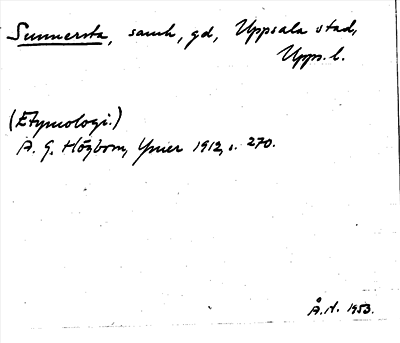 Sunnersta, samh, gd, Uppsala stad,
Upps. l.
(Etymologi.)
A. G. Högbom, Ymer 1912, s. 270.
Å. H. 1953.